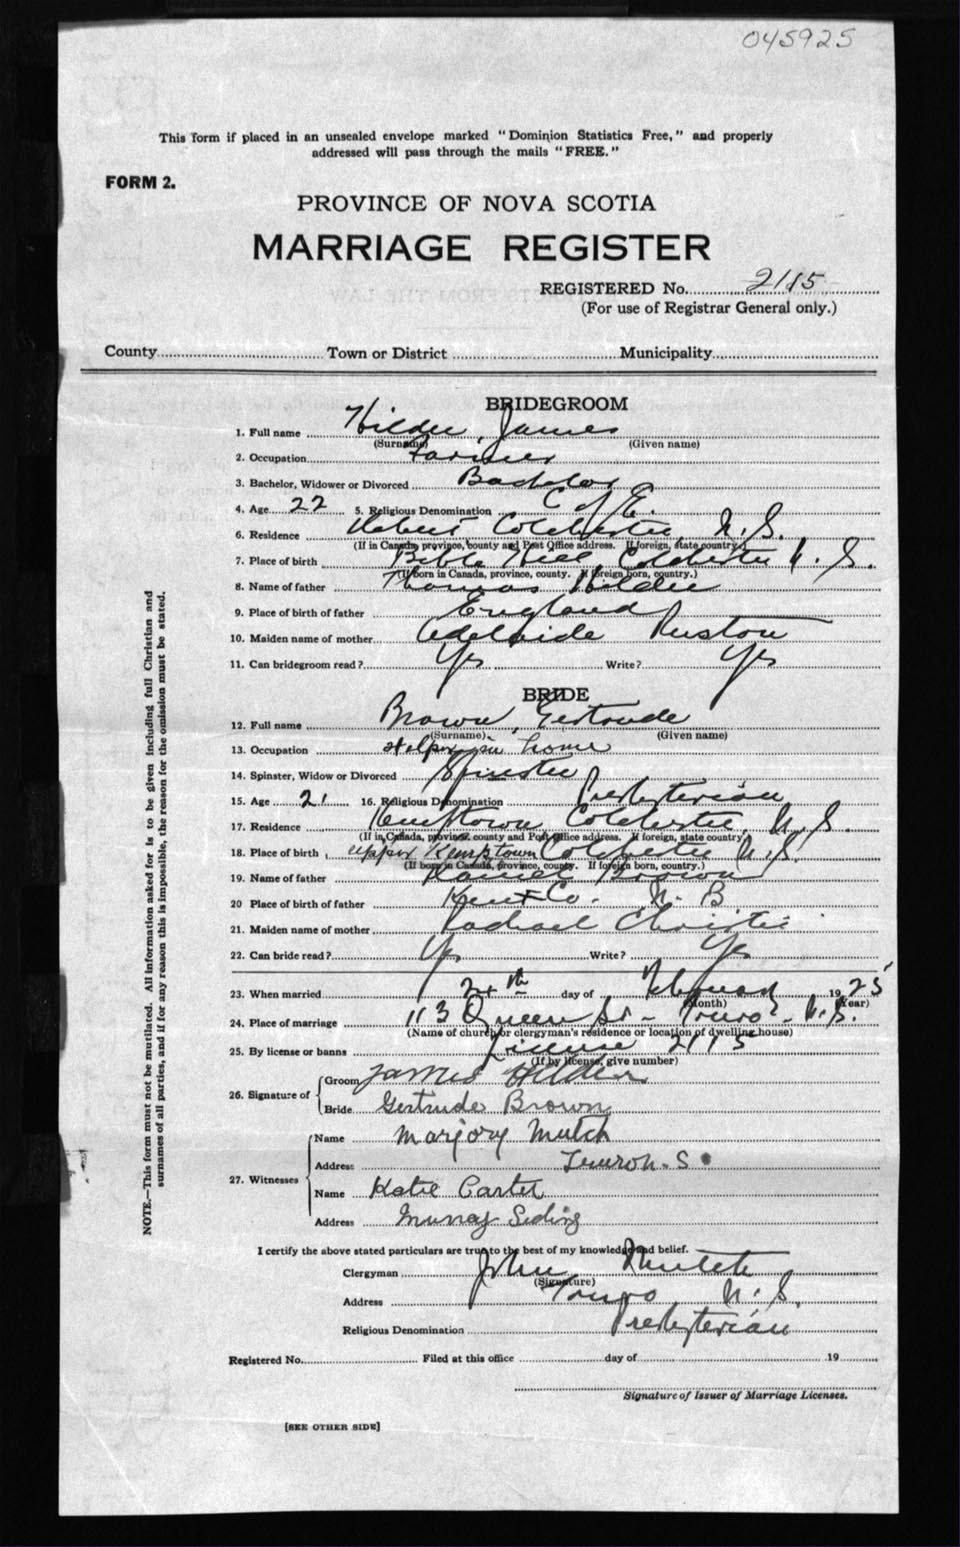 045925
This form if placed in an unsealed envelope marked "Dominion Statistics Free," and properly
addressed will pass through the mails "FREE."
FORM 2.
PROVINCE OF NOVA SCOTIA
MARRIAGE REGISTER
REGISTERED No. 2115
(For use of Registrar General only.)
County Town or District Municipality
BRIDEGROOM
1. Full name James
(Surname) (Given name)
2. Occupation Farmer
3. Bachelor, Widower or Divorced Bachelor
4. Age 22 5. Religious Denomination C of E.
6. Residence Colchester, N.S.
(If in Canada, province, county and Post Office address. If foreign, state country.)
7. Place of birth Bible Hill Colchester N.S.
(If born in Canada, province, county. If foreign born, country.)
8. Name of father Thomas
9. Place of birth of father England
10. Maiden name of mother Adelaide
11. Can bridegroom read? Yes Write? Yes
BRIDE
12. Full name Brown, Gertrude
(Surname) (Given name)
13. Occupation Helping in home
14. Spinster, Widow or Divorced Spinster
15. Age 21 16. Religious Denomination Presbyterian
17. Residence Kemptown Colchester N.S.
(If in Canada, province, county and Post Office address. If foreign, state country)
18. Place of birth Upper Kemptown Colchester N.S.
(If born in Canada, province, county. If foreign born, country.)
19. Name of father Daniel Brown
20 Place of birth of father Kent Co. N.B
21. Maiden name of mother Rachael Christie
22. Can bride read? Yes Write? Yes
23. When married 24th day of February 1925
(Month) (Year)
24. Place of marriage 113 Queen St - Truro - N.S.
(Name of church or clergyman's residence or location of dwelling house)
25. By license or banns License 2115
(If by license, give number)
26. Signature of
Groom James
Bride Gertrude Brown
27. Witnesses
Name Marjory Mutch
Address Truro N.S.
Name Katie Carter
Address Murray Siding
I certify the above stated particulars are true to the best of my knowledge and belief.
Clergyman John Mutch
(Signature)
Address Truro N.S.
Religious Denomination Presbyterian
Registered No. Filed at this office day of 19
Signature of Issuer of Marriage Licenses.
[SEE OTHER SIDE]
NOTE.—This form must not be mutilated. All information asked for is to be given including full Christian and
surnames of all parties, and if for any reason this is impossible, the reason for the omission must be stated.